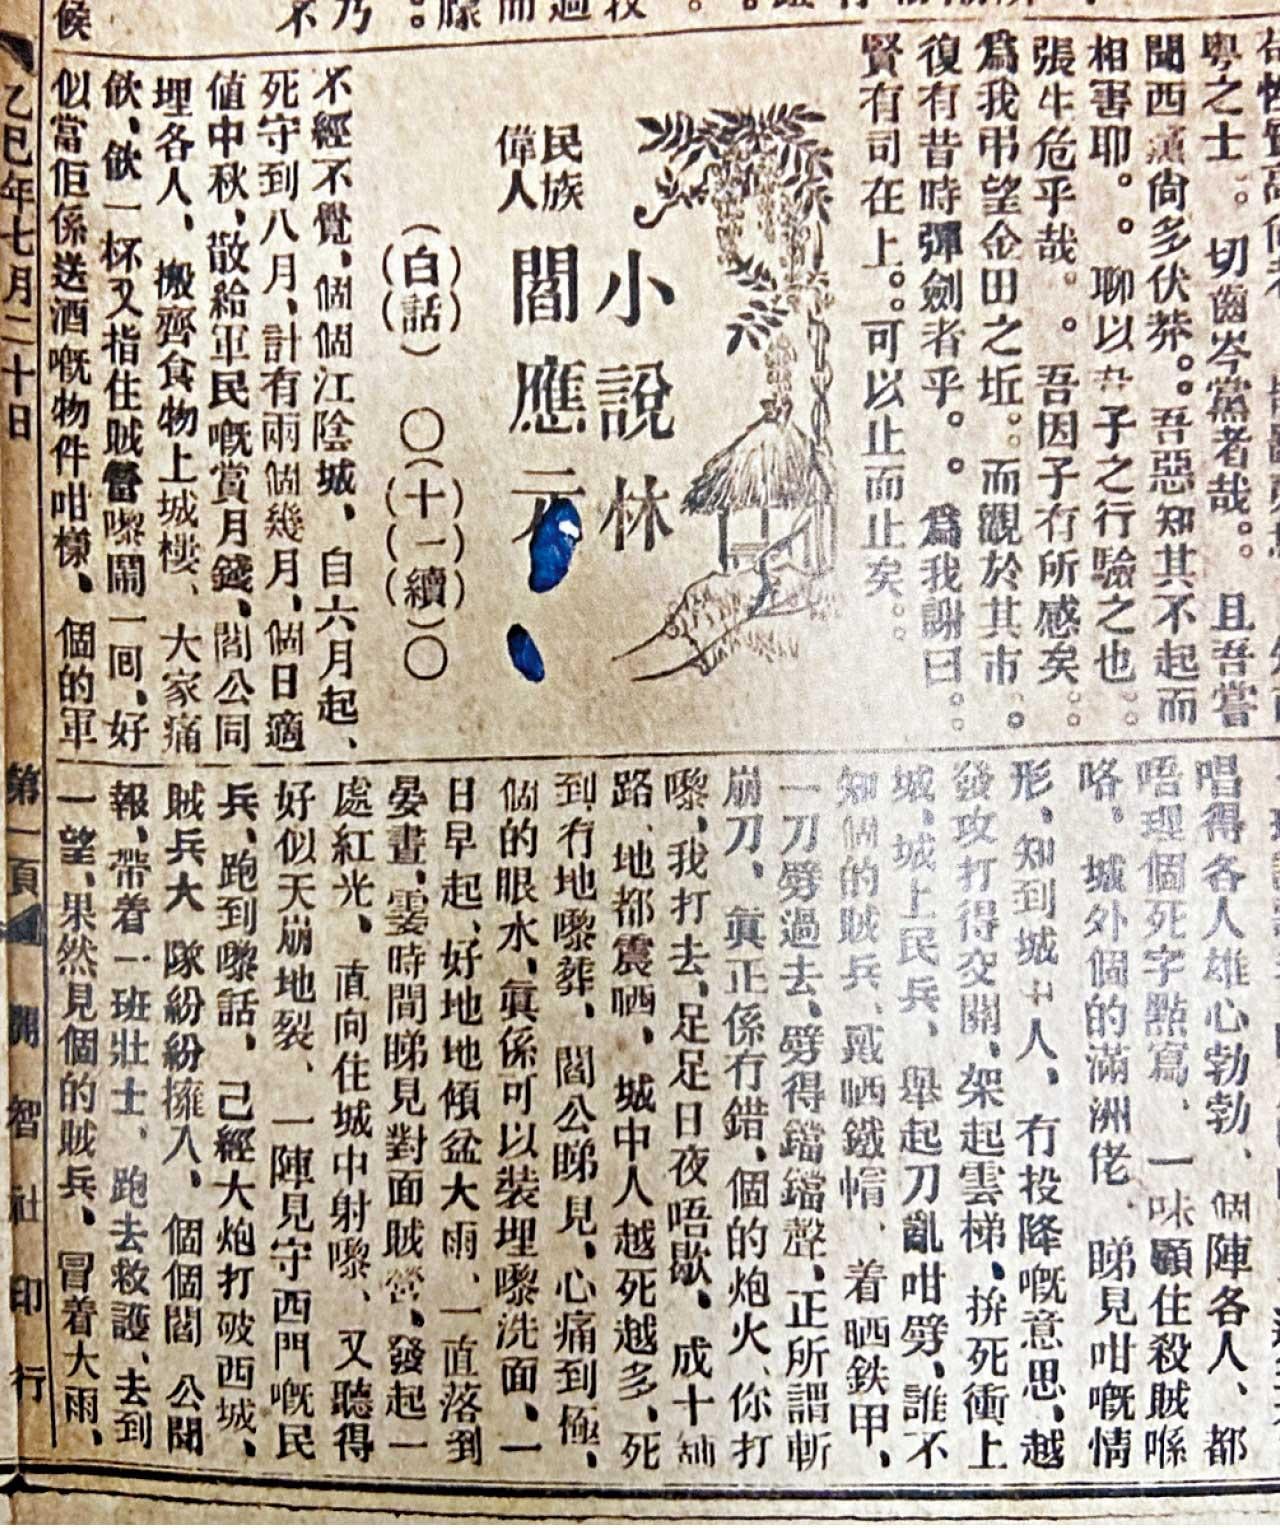 粤之士。切齒岑黨者哉。。且吾嘗
聞西黨尙多伏莽。。吾惡知其不起而
相害耶。。聊以子之行驗之也。。
張牛危乎哉。。吾因子有所感矣。。
爲我弔望金田之坵。。而觀於其市。。
復有昔時彈劍者乎。。爲我謝曰。。
賢有司在上。。可以止而止矣。。
小說林
民族偉人
閻應元
(白話)〇(十一續)〇
不經不覺、個個江陰城、自六月起、
死守到八月、計有兩個幾月、個日適
值中秋、散給軍民嘅賞月錢、閻公同
埋各人、搬齊食物上城樓、大家痛
飲、飲一杯又指住賊營嚟鬧一囘、好
似當佢係送酒嘅物件咁樣、個的軍
唱得各人雄心勃勃、個陣各人、都
唔理個死字點寫、一味顧住殺賊喺
咯、城外個的滿洲佬、睇見咁嘅情
形、知到城中人、冇投降嘅意思、越
發攻打得交關、架起雲梯、拚死衝上
城、城上民兵、舉起刀亂咁劈、誰不
知個的賊兵、戴晒鐵帽、着晒鉄甲、
一刀劈過去、劈得鐺鐺聲、正所謂斬
崩刀、眞正係冇錯、個的炮火、你打
嚟、我打去、足足日夜唔歇、成十
路、地都震晒、城中人越死越多、死
到冇地嚟葬、閻公睇見、心痛到極、
個的眼水、眞係可以裝埋嚟洗面、一
日早起、好地地傾盆大雨、一直落到
晏晝、霎時間睇見對面賊營、發起一
處紅光、直向住城中射嚟、又聽得
好似天崩地裂、一陣見守西門嘅民
兵、跑到嚟話、己經大炮打破西城、
賊兵大隊紛紛擁入、個個閻公聞
報、帶着一班壯士、跑去救護、去到
一望、果然見個的賊兵、冒着大雨、
乙巳年七月二十日
第一頁
開智社印行